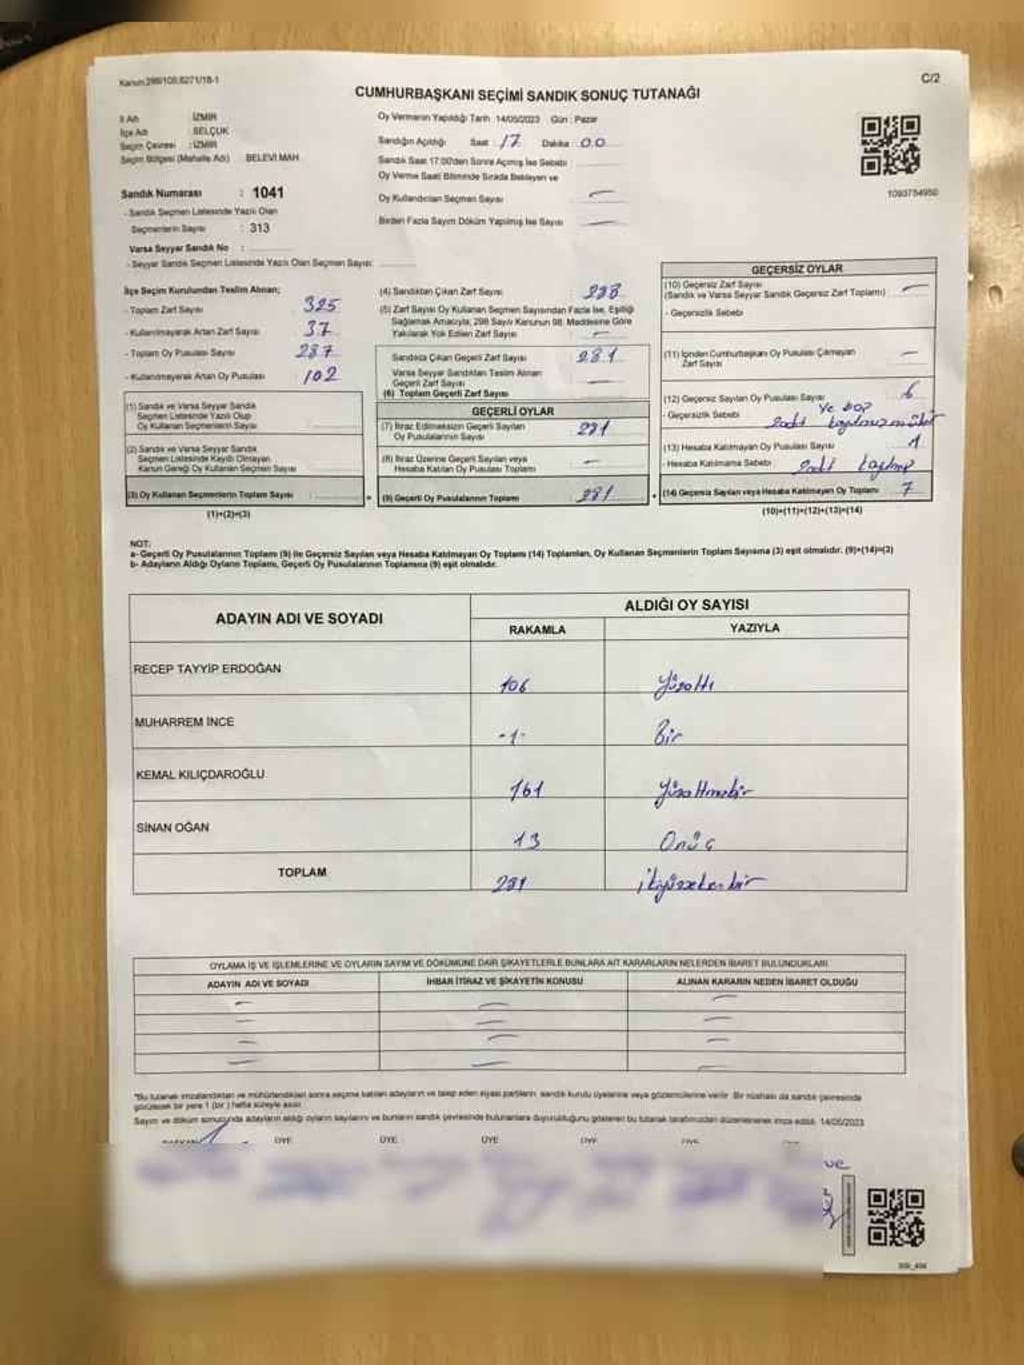 Kanun:298/105,6271/18-1
C/2
CUMHURBAŞKANI SEÇİMİ SANDIK SONUÇ TUTANAĞI
İl Adı : İZMİR
İlçe Adı : SELÇUK
Seçim Çevresi : İZMİR
Seçim Bölgesi (Mahalle Adı) BELEVİ MAH
Sandık Numarası : 1041
- Sandık Seçmen Listesinde Yazılı Olan
Seçmenlerin Sayısı : 313
Varsa Seyyar Sandık No :
- Seyyar Sandık Seçmen Listesinde Yazılı Olan Seçmen Sayısı:
Oy Vermenin Yapıldığı Tarih :14/05/2023 Gün : Pazar
Sandığın Açıldığı Saat : 17 Dakika : 00
Sandık Saat 17:00'den Sonra Açılmış İse Sebebi :
Oy Verme Saati Bitiminde Sırada Bekleyen ve
Oy Kullandırılan Seçmen Sayısı :
Birden Fazla Sayım Döküm Yapılmış İse Sayısı :
1093754950
İlçe Seçim Kurulundan Teslim Alınan;
- Toplam Zarf Sayısı : 325
- Kullanılmayarak Artan Zarf Sayısı : 37
- Toplam Oy Pusulası Sayısı :
- Kullanılmayarak Artan Oy Pusulası : 102
(1) Sandık ve Varsa Seyyar Sandık
Seçmen Listesinde Yazılı Olup
Oy Kullanan Seçmenlerin Sayısı :
(2) Sandık ve Varsa Seyyar Sandık
Seçmen Listesinde Kaydı Olmayan
Kanun Gereği Oy Kullanan Seçmen Sayısı :
(3) Oy Kullanan Seçmenlerin Toplam Sayısı :
(1)+(2)=(3)
(4) Sandıktan Çıkan Zarf Sayısı : 288
(5) Zarf Sayısı Oy Kullanan Seçmen Sayısından Fazla İse, Eşitliği
Sağlamak Amacıyla, 298 Sayılı Kanunun 98. Maddesine Göre
Yakılarak Yok Edilen Zarf Sayısı :
Sandıkta Çıkan Geçerli Zarf Sayısı : 281
Varsa Seyyar Sandıktan Teslim Alınan
Geçerli Zarf Sayısı :
(6) Toplam Geçerli Zarf Sayısı :
GEÇERLİ OYLAR
(7) İtiraz Edilmeksizin Geçerli Sayılan
Oy Pusulalarının Sayısı : 281
(8) İtiraz Üzerine Geçerli Sayılan veya
Hesaba Katılan Oy Pusulası Toplamı :
(9) Geçerli Oy Pusulalarının Toplamı : 281
GEÇERSİZ OYLAR
(10) Geçersiz Zarf Sayısı
(Sandık ve Varsa Seyyar Sandık Geçersiz Zarf Toplamı) :
- Geçersizlik Sebebi :
(11) İçinden Cumhurbaşkanı Oy Pusulası Çıkmayan
Zarf Sayısı :
(12) Geçersiz Sayılan Oy Pusulası Sayısı : 6
- Geçersizlik Sebebi :
(13) Hesaba Katılmayan Oy Pusulası Sayısı : 1
- Hesaba Katılmama Sebebi :
(14) Geçersiz Sayılan veya Hesaba Katılmayan Oy Toplamı : 7
(10)+(11)+(12)+(13)=(14)
NOT:
a- Geçerli Oy Pusulalarının Toplamı (9) ile Geçersiz Sayılan veya Hesaba Katılmayan Oy Toplamı (14) Toplamları, Oy Kullanan Seçmenlerin Toplam Sayısına (3) eşit olmalıdır. (9)+(14)=(3)
b- Adayların Aldığı Oyların Toplamı, Geçerli Oy Pusulalarının Toplamına (9) eşit olmalıdır.
ADAYIN ADI VE SOYADI
ALDIĞI OY SAYISI
RAKAMLA YAZIYLA
RECEP TAYYİP ERDOĞAN 106 Yüzaltı
MUHARREM İNCE -1- Bir
KEMAL KILIÇDAROĞLU 161 Yüzaltmışbir
SİNAN OĞAN 13 Onüç
TOPLAM 281 ikiyüzseksenbir
OYLAMA İŞ VE İŞLEMLERİNE VE OYLARIN SAYIM VE DÖKÜMÜNE DAİR ŞİKAYETLERLE BUNLARA AİT KARARLARIN NELERDEN İBARET BULUNDUKLARI
ADAYIN ADI VE SOYADI İHBAR İTİRAZ VE ŞİKAYETİN KONUSU ALINAN KARARIN NEDEN İBARET OLDUĞU
*Bu tutanak imzalandıktan ve mühürlendikten sonra seçime katılan adayların ve talep eden siyasi partilerin sandık kurulu üyelerine veya gözlemcilerine verilir. Bir nüshası da sandık çevresinde
görülecek bir yere 1 (bir) hafta süreyle asılır.
Sayım ve döküm sonucunda adayların aldığı oyların sayılarını ve bunların sandık çevresinde bulunanlara duyurulduğunu gösteren bu tutanak tarafımızdan düzenlenerek imza edildi. 14/05/2023
BAŞKAN ÜYE ÜYE ÜYE ÜYE ÜYE